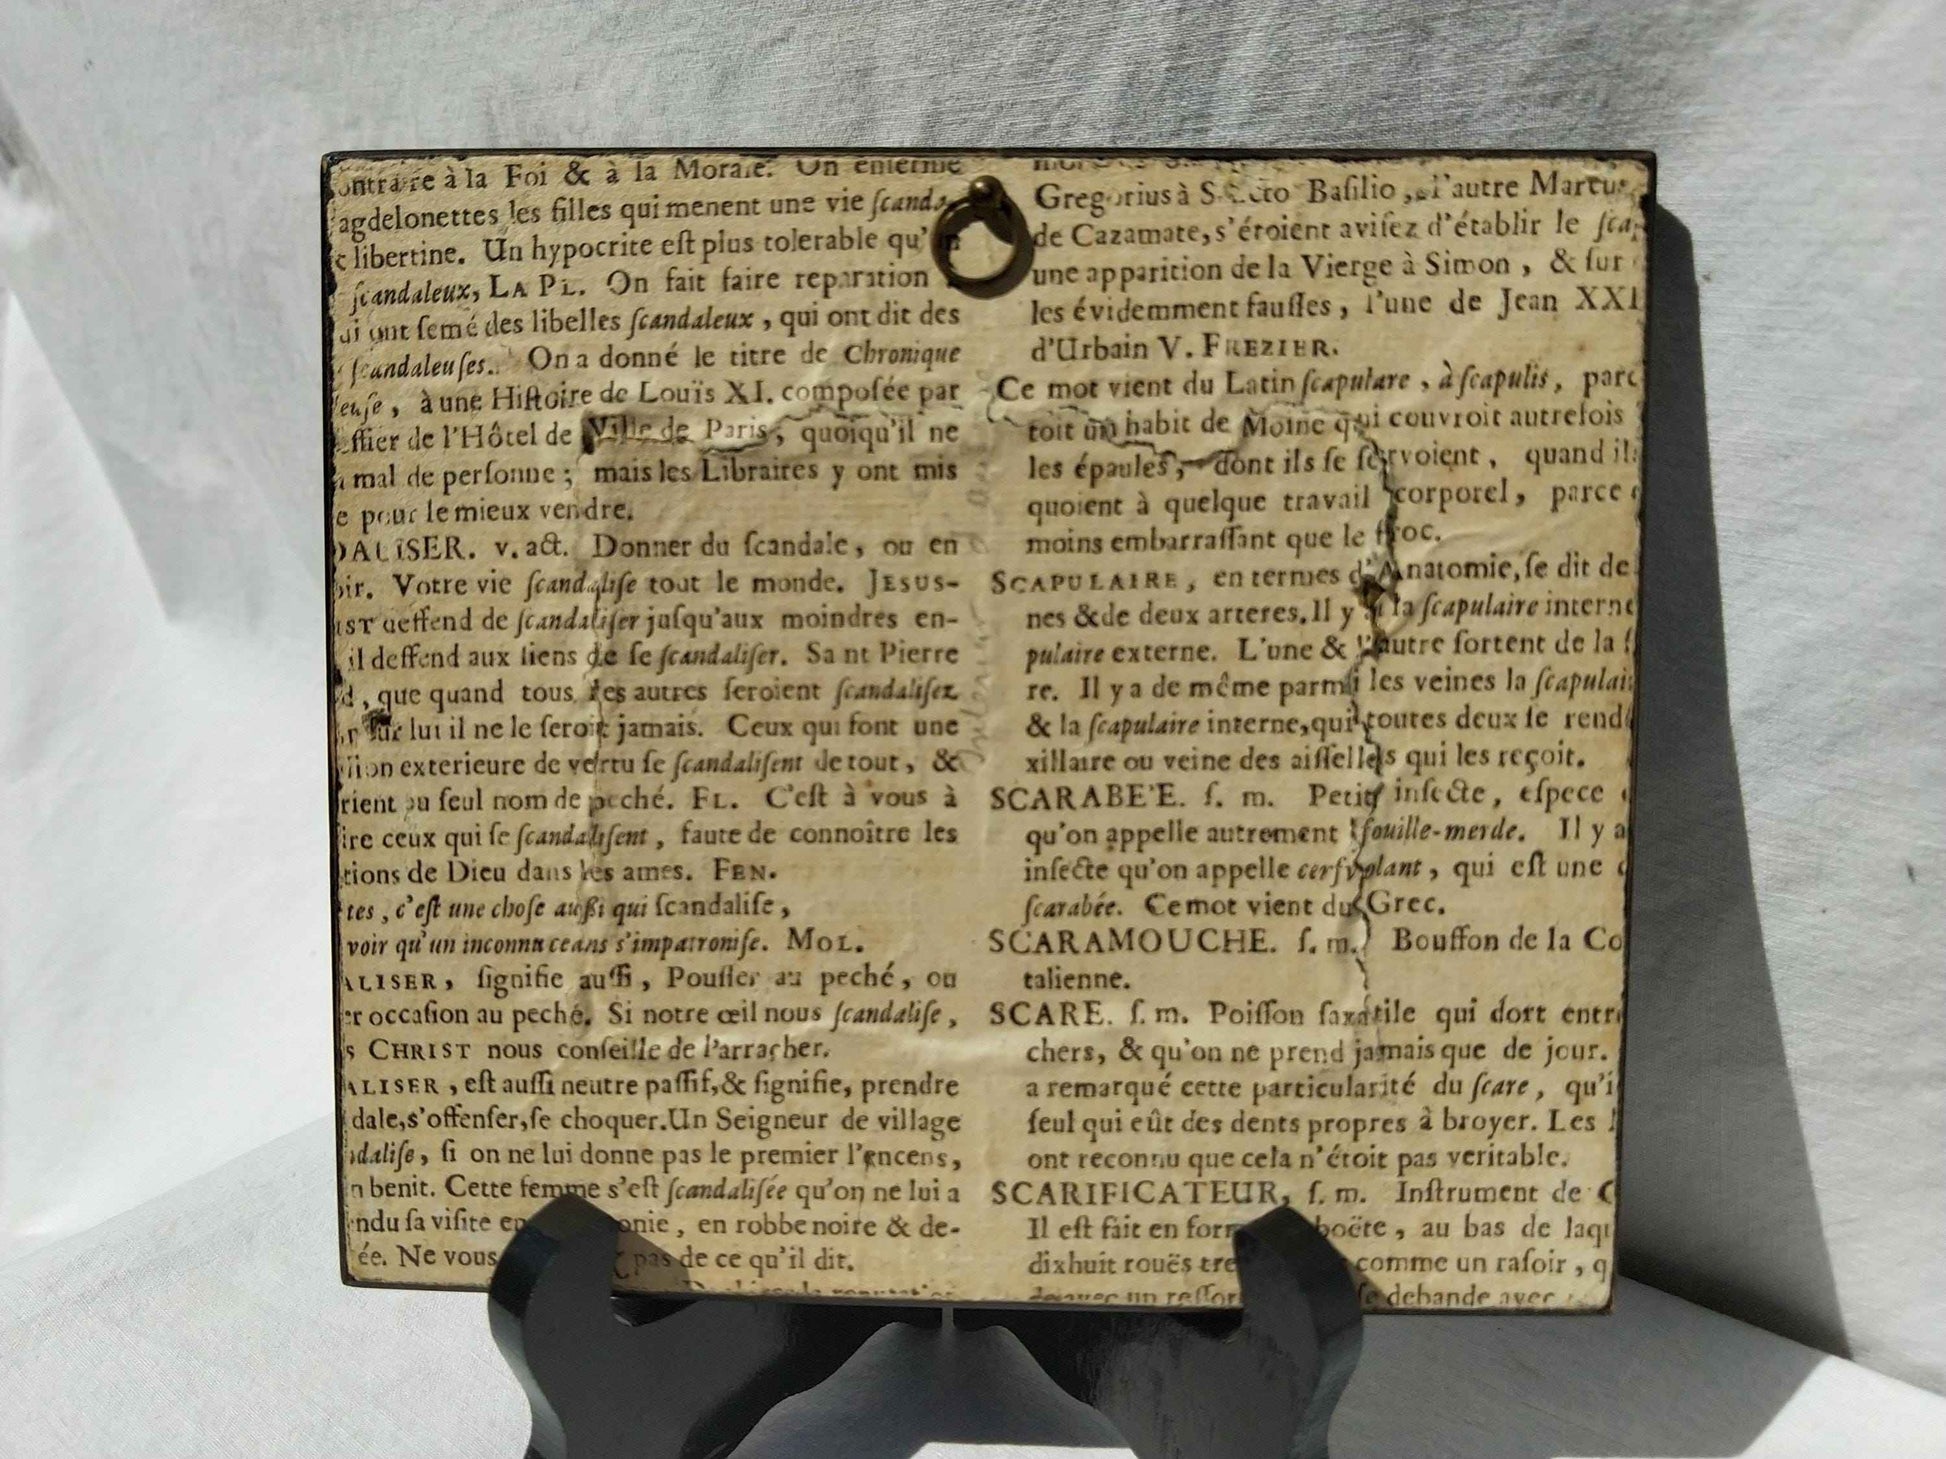 à la Foi & à la Morale. On enferme
agdelonettes les filles qui menent une vie ſcanda
libertine. Un hypocrite eſt plus tolerable qu'
ſcandaleux, LA PL. On fait faire reparation
ont ſemé des libelles ſcandaleux, qui ont dit des
ſcandaleuſes. On a donné le titre de Chronique
euſe, à une Hiſtoire de Louïs XI. compoſée par
de l'Hôtel de Ville de Paris, quoiqu'il ne
mal de perſonne; mais les Libraires y ont mis
e pour le mieux vendre.
DALISER. v. act. Donner du ſcandale, ou en
oir. Votre vie ſcandaliſe tout le monde. JESUS-
IST deffend de ſcandaliſer juſqu'aux moindres en-
il deffend aux ſiens de ſe ſcandaliſer. Saint Pierre
d, que quand tous les autres ſeroient ſcandaliſez
ſur lui il ne le ſeroit jamais. Ceux qui font une
exterieure de vertu ſe ſcandaliſent de tout, &
rient au ſeul nom de peché. FL. C'eſt à vous à
ire ceux qui ſe ſcandaliſent, faute de connoître les
tions de Dieu dans les ames. FEN.
tes, c'eſt une choſe auſſi qui ſcandaliſe,
voir qu'un inconnu ceans s'impatroniſe. MOL.
ALISER, ſignifie auſſi, Pouſſer au peché, ou
er occaſion au peché. Si notre œil nous ſcandaliſe,
s CHRIST nous conſeille de l'arracher.
ALISER, eſt auſſi neutre paſſif, & ſignifie, prendre
dale, s'offenſer, ſe choquer. Un Seigneur de village
ndaliſe, ſi on ne lui donne pas le premier l'encens,
n benit. Cette femme s'eſt ſcandaliſée qu'on ne lui a
ndu ſa viſite en onie, en robbe noire & de-
ée. Ne vous pas de ce qu'il dit.
Gregorius à Baſilio, l'autre Marcus
de Cazamate, s'étoient aviſez d'établir le ſca
une apparition de la Vierge à Simon, & ſur
les évidemment fauſſes, l'une de Jean XXI
d'Urbain V. FREZIER.
Ce mot vient du Latin ſcapulare, à ſcapulis, parc
toit un habit de Moine qui couvroit autrefois
les épaules, dont ils ſe ſervoient, quand ils
quoient à quelque travail corporel, parce
moins embarraſſant que le froc.
SCAPULAIRE, en termes d'Anatomie, ſe dit de
nes & de deux arteres. Il y a la ſcapulaire interne
pulaire externe. L'une & l'autre ſortent de la ſ
re. Il y a de même parmi les veines la ſcapulai
& la ſcapulaire interne, qui toutes deux ſe rend
xillaire ou veine des aiſſelles qui les reçoit.
SCARABE'E. ſ. m. Petit inſecte, eſpece
qu'on appelle autrement fouille-merde. Il y a
inſecte qu'on appelle cerf volant, qui eſt une
ſcarabée. Ce mot vient du Grec.
SCARAMOUCHE. ſ. m. Bouffon de la Co
talienne.
SCARE. ſ. m. Poiſſon ſaxatile qui dort entr
chers, & qu'on ne prend jamais que de jour.
a remarqué cette particularité du ſcare, qu'i
ſeul qui eût des dents propres à broyer. Les
ont reconnu que cela n'étoit pas veritable.
SCARIFICATEUR, ſ. m. Inſtrument de C
Il eſt fait en form boëte, au bas de laqu
dixhuit rouës tre comme un raſoir, q
avec un reſſor ſe debande avec